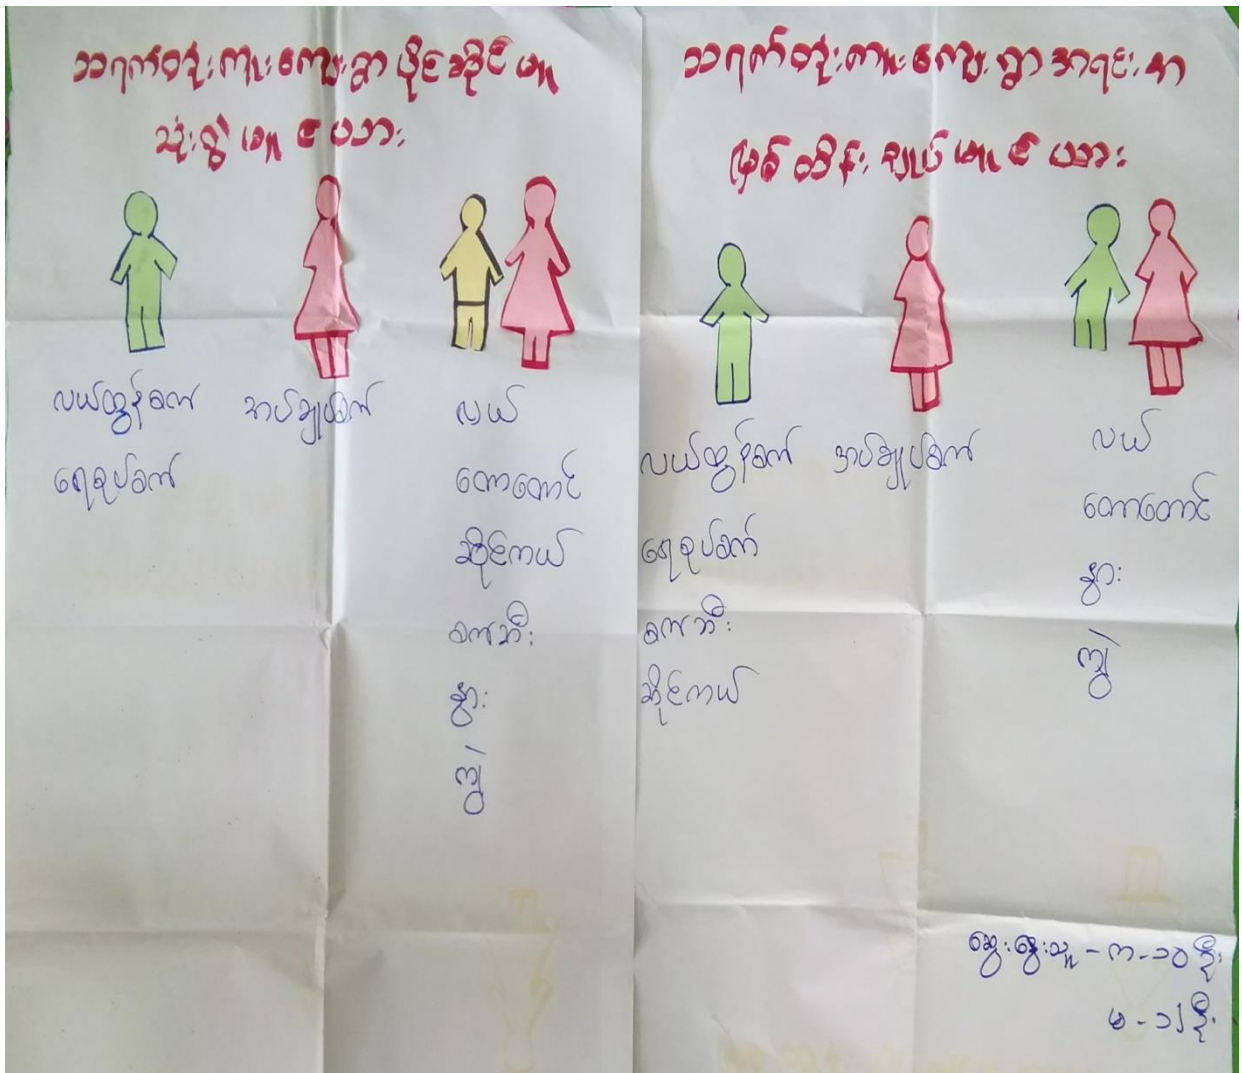 သရက်တုံးကူးကျေးရွာ ပိုင်ဆိုင်မှု
သုံးစွဲမှု ဇယား
လယ်ထွန်စက်
ရေစုပ်စက်
အပ်ချုပ်စက်
လယ်
တောတောင်
ဆိုင်ကယ်
စက်ဘီး
နွား
ကျွဲ
သရက်တုံးကူးကျေးရွာ အရင်းအ
မြစ် ထိန်းချုပ်မှု ဇယား
လယ်ထွန်စက်
ရေစုပ်စက်
စက်ဘီး
ဆိုင်ကယ်
အပ်ချုပ်စက်
လယ်
တောတောင်
နွား
ကျွဲ
ဆွေးနွေးသူ - က - ၁၀ ဦး
မ - ၁၂ ဦး